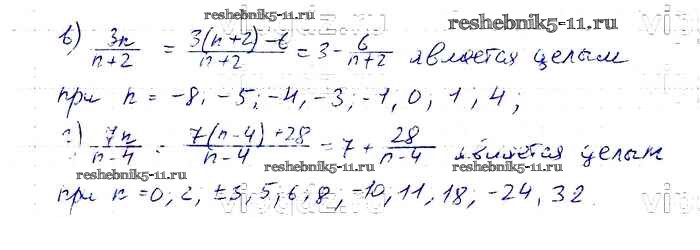 reshebnik5-11.ru reshebnik5-11.ru
в) 3n/(n+2) = (3(n+2)-6)/(n+2) = 3 - 6/(n+2) является целым
при n = -8, -5; -4, -3; -1, 0, 1, 4;
г) 7n/(n-4) = (7(n-4)+28)/(n-4) = 7 + 28/(n-4) является целым
reshebnik5-11.ru reshebnik5-11.ru
при n = 0, 2, ±3, 5, 6, 8, -10, 11, 18, -24, 32